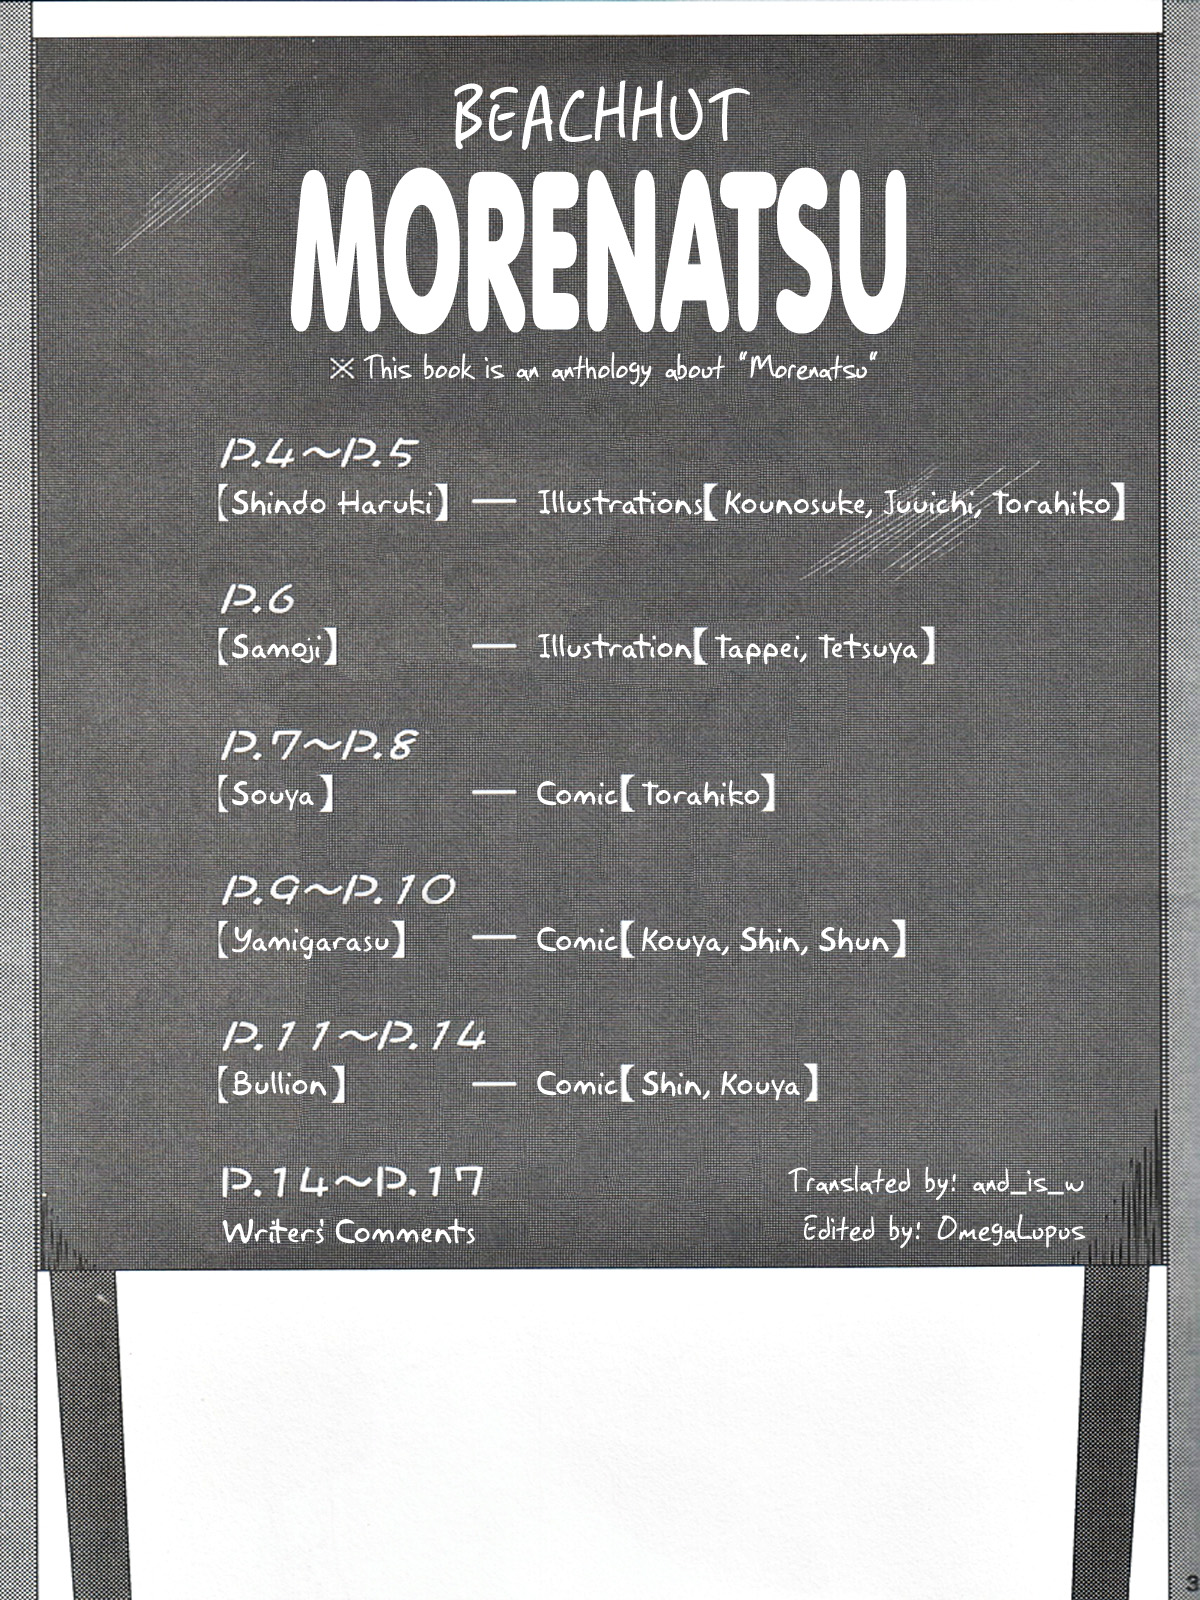 BEACHHUT
MORENATSU
※ This book is an anthology about "Morenatsu"
P.4～P.5
【Shindo Haruki】 — Illustrations【Kounosuke, Juuichi, Torahiko】
P.6
【Samoji】 — Illustration【Tappei, Tetsuya】
P.7～P.8
【Souya】 — Comic【Torahiko】
P.9～P.10
【Yamigarasu】 — Comic【Kouya, Shin, Shun】
P.11～P.14
【Bullion】 — Comic【Shin, Kouya】
P.14～P.17
Writers' Comments
Translated by: and_is_w
Edited by: OmegaLupus
3